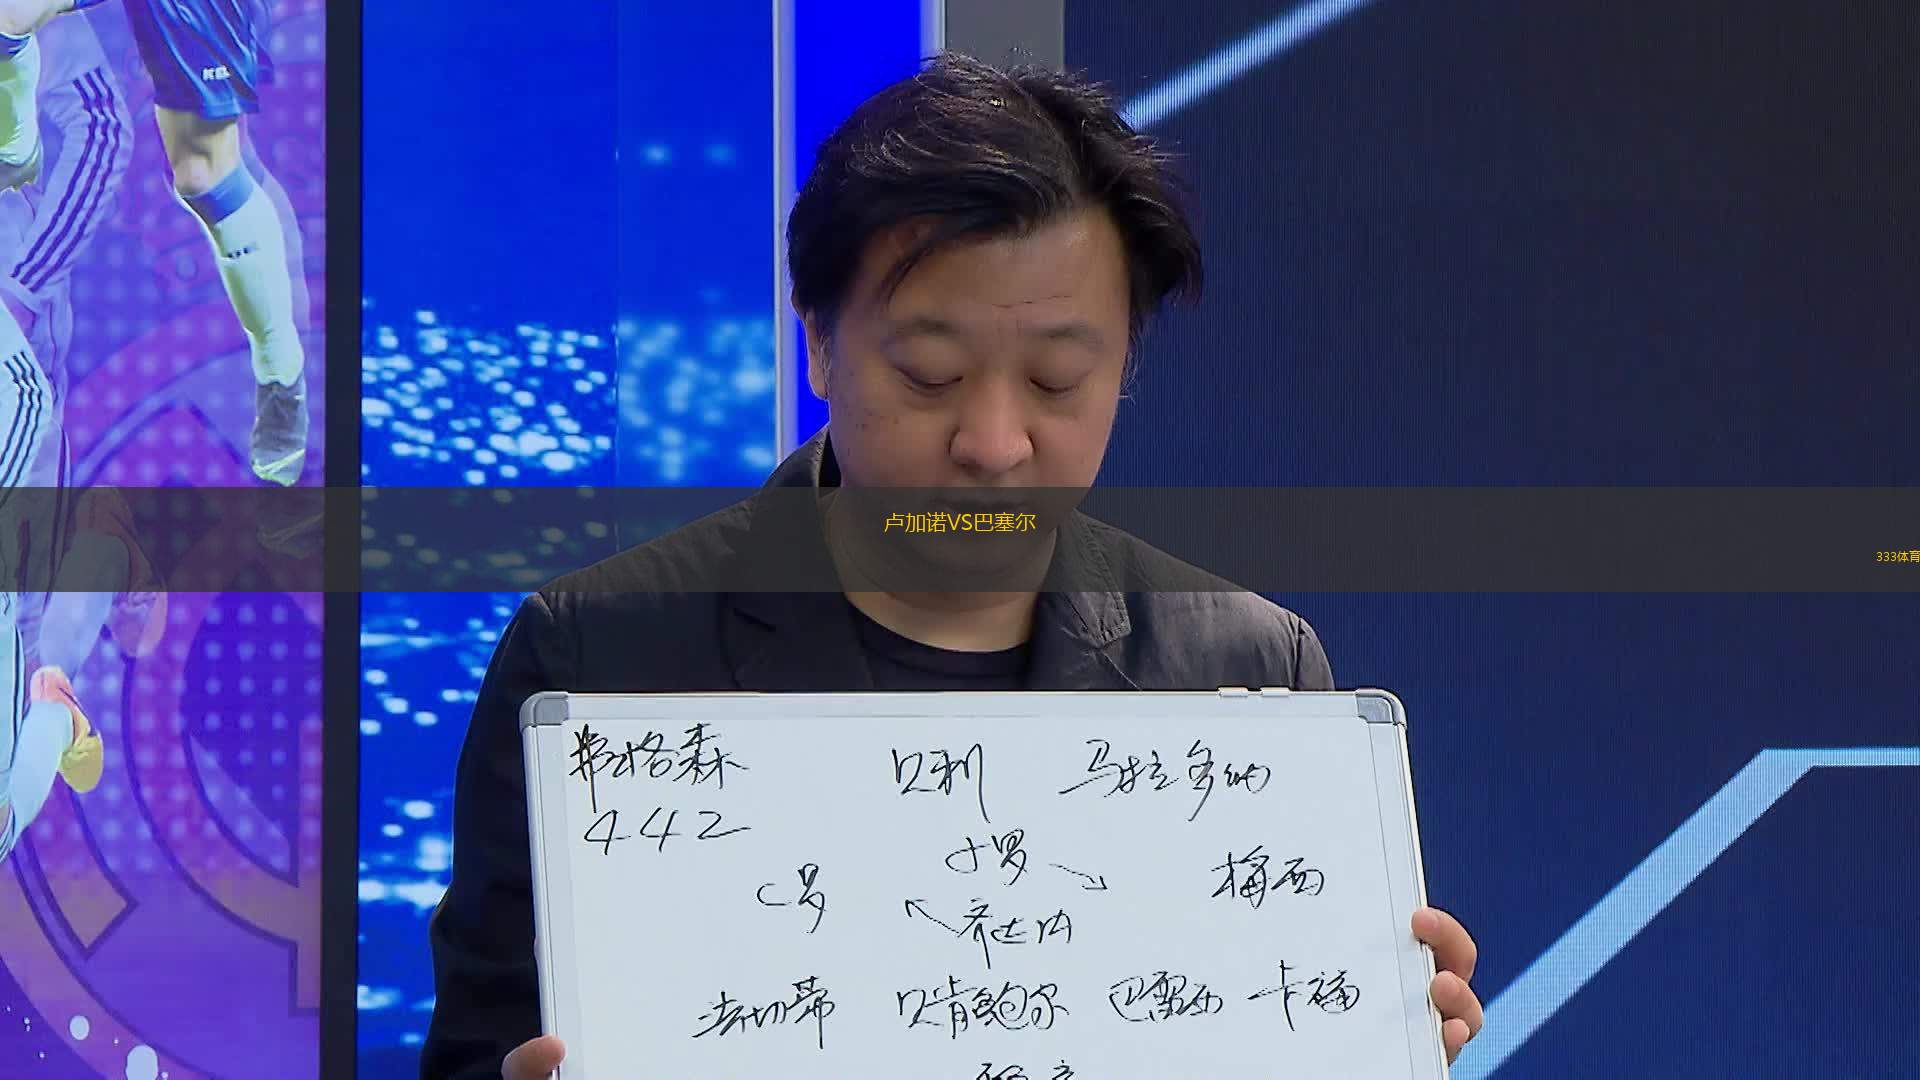 卢加诺VS巴塞尔
333体育
弗格森 贝利 马拉多纳
442
小罗
C罗 梅西
齐达内
法切蒂 贝肯鲍尔 巴雷西 卡福